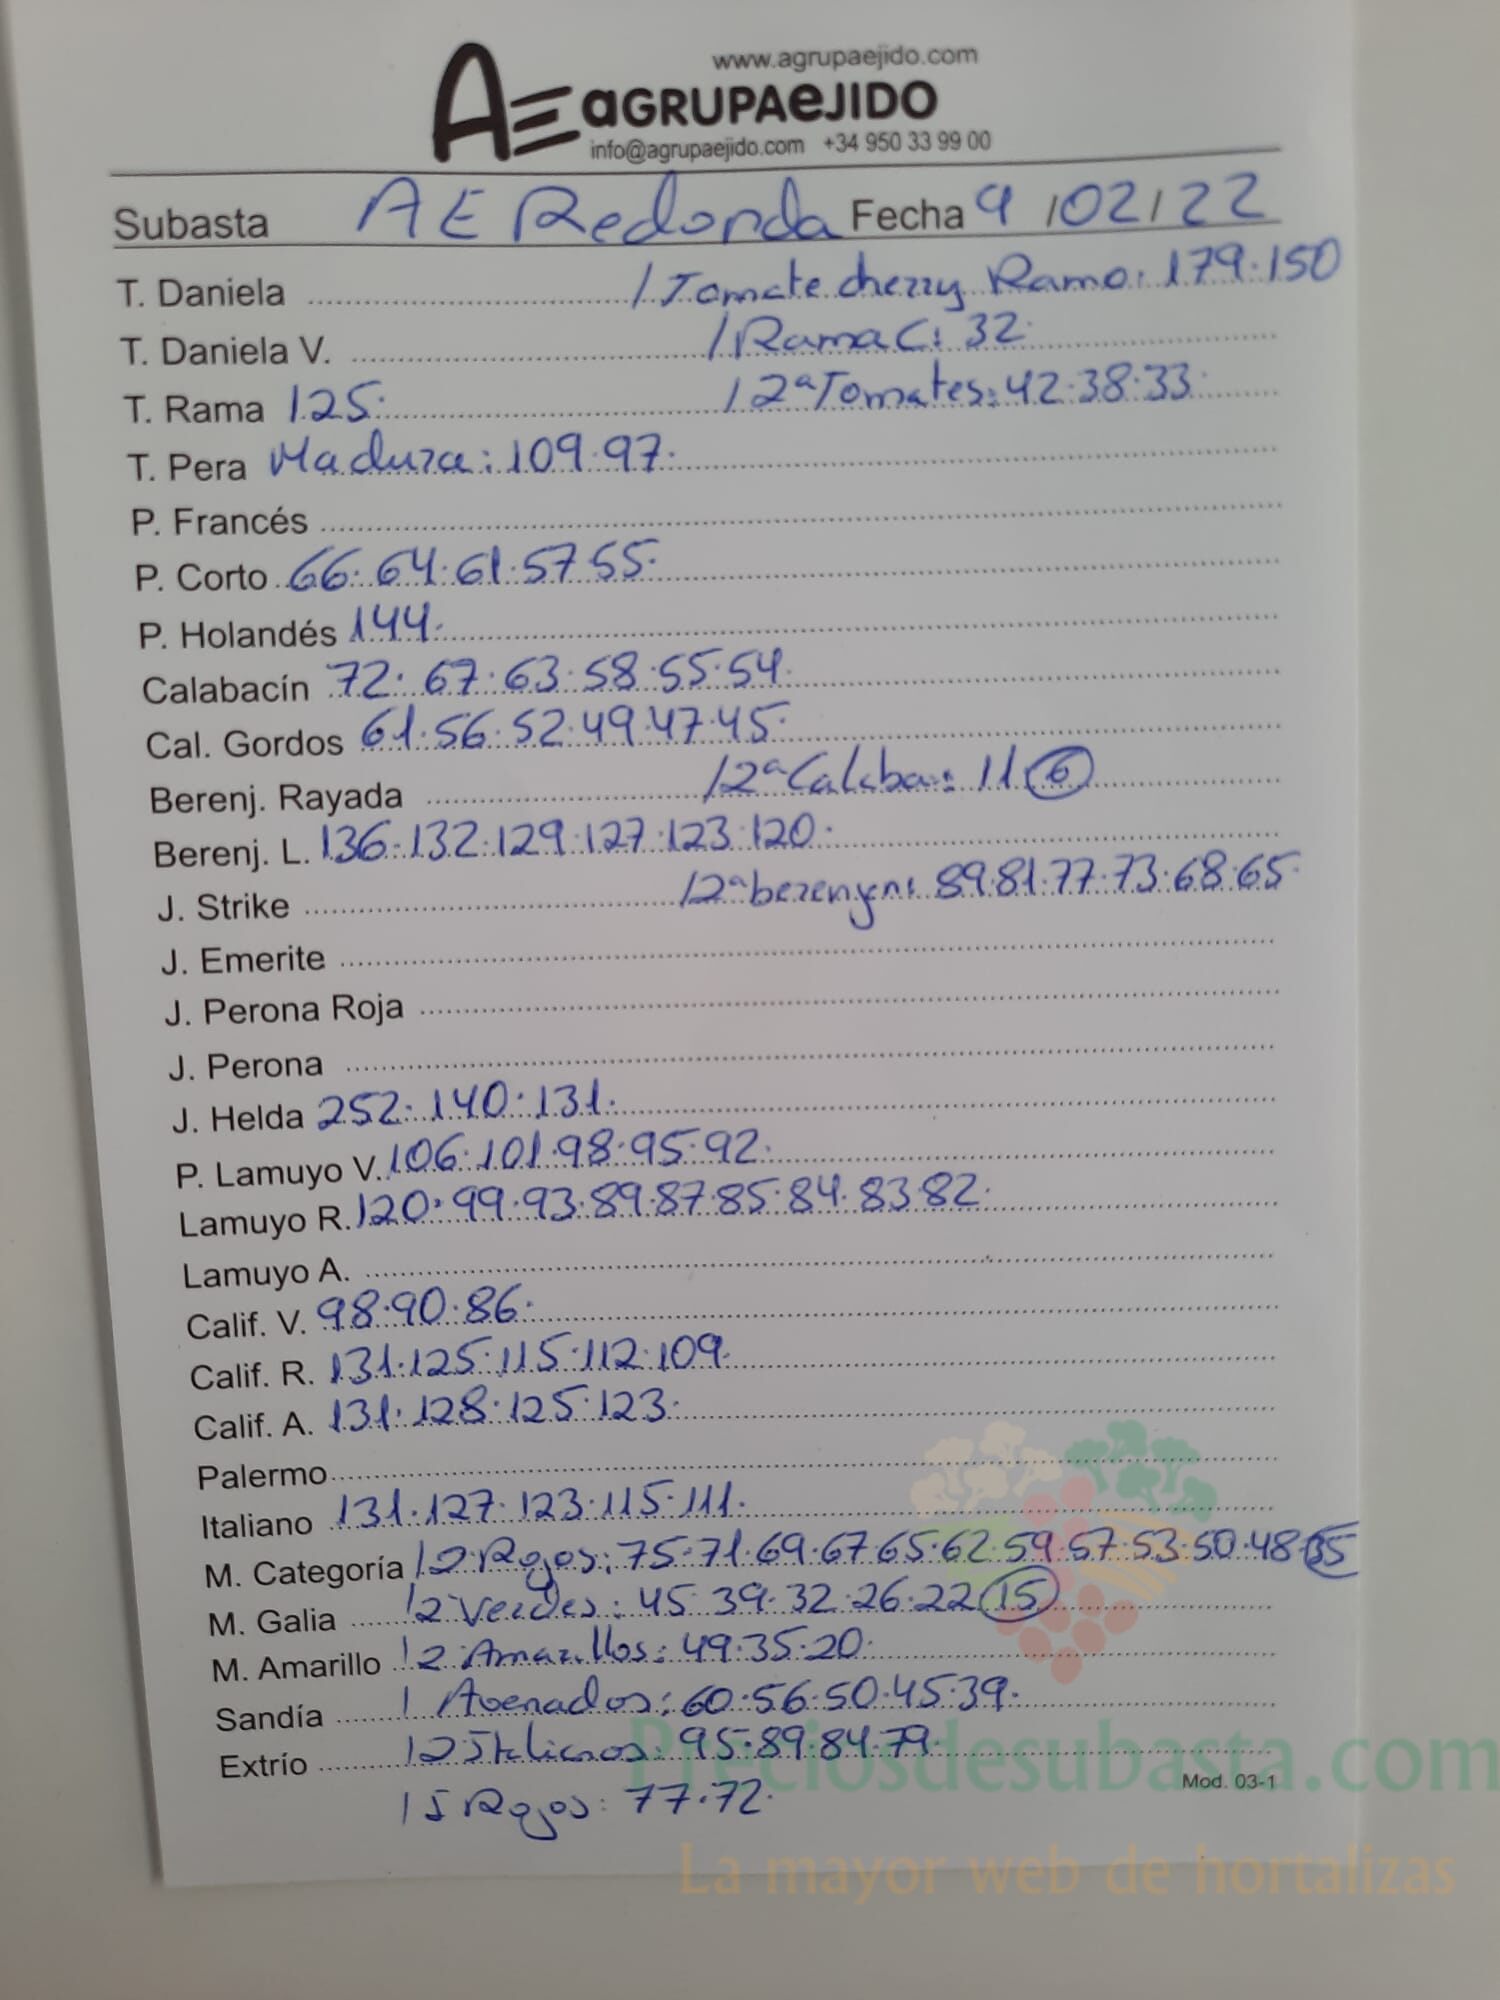 www.agrupaejido.com
AE aGRUPAeJIDO
info@agrupaejido.com +34 950 33 99 00
Subasta AE Redonda Fecha 9/02/22
T. Daniela / Tomate cherry Ramo: 179.150
T. Daniela V. / Rama C: 32.
T. Rama 125. / 2ª Tomates: 42.38.33.
T. Pera Madura: 109.97.
P. Francés
P. Corto 66.64.61.57.55.
P. Holandés 144.
Calabacín 72.67.63.58.55.54.
Cal. Gordos 61.56.52.49.47.45.
Berenj. Rayada / 2ª Calaba: 11 6
Berenj. L. 136.132.129.127.123.120.
J. Strike / 2ª berenjen: 89.81.77.73.68.65.
J. Emerite
J. Perona Roja
J. Perona
J. Helda 252.140.131.
P. Lamuyo V. 106.101.98.95.92.
Lamuyo R. 120.99.93.89.87.85.84.83.82.
Lamuyo A.
Calif. V. 98.90.86.
Calif. R. 131.125.115.112.109.
Calif. A. 131.128.125.123.
Palermo
Italiano 131.127.123.115.111.
M. Categoría / 2 Rojos: 75.71.69.67.65.62.59.57.53.50.48.35
M. Galia / 2 Verdes: 45.39.32.26.22 15
M. Amarillo / 2 Amarillos: 49.35.20.
Sandía / Asenados: 60.56.50.45.39.
Extrío / 2 Italianos: 95.89.84.79.
/ S Rojos: 77.72.
Mod. 03-1
Preciosdesubasta.com
La mayor web de hortalizas